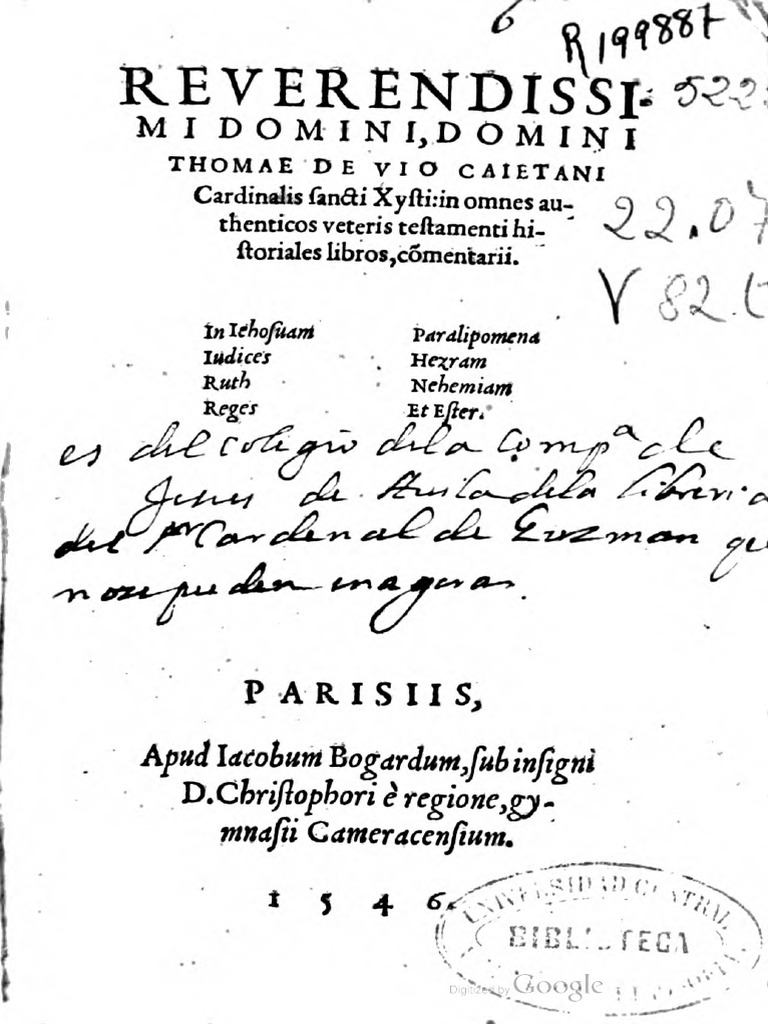 6
R 199887
522
REVERENDISSI-
MI DOMINI, DOMINI
22.07
THOMAE DE VIO CAIETANI
Cardinalis sancti Xysti: in omnes au-
thenticos veteris testamenti hi-
storiales libros, cõmentarii.
V 82.
In Iehosuam
Iudices
Ruth
Reges
Paralipomena
Hezram
Nehemiam
Et Ester.
es del colegio dela Compª de
Jesus de Auila dela libreria
del Cardenal de Guzman que
no se pueden enagenar.
PARISIIS,
Apud Iacobum Bogardum, sub insigni
D. Christophori è regione, gy-
mnasii Cameracensium.
1546.
UNIVERSIDAD CENTRAL
BIBLIOTECA
Digitized by Google